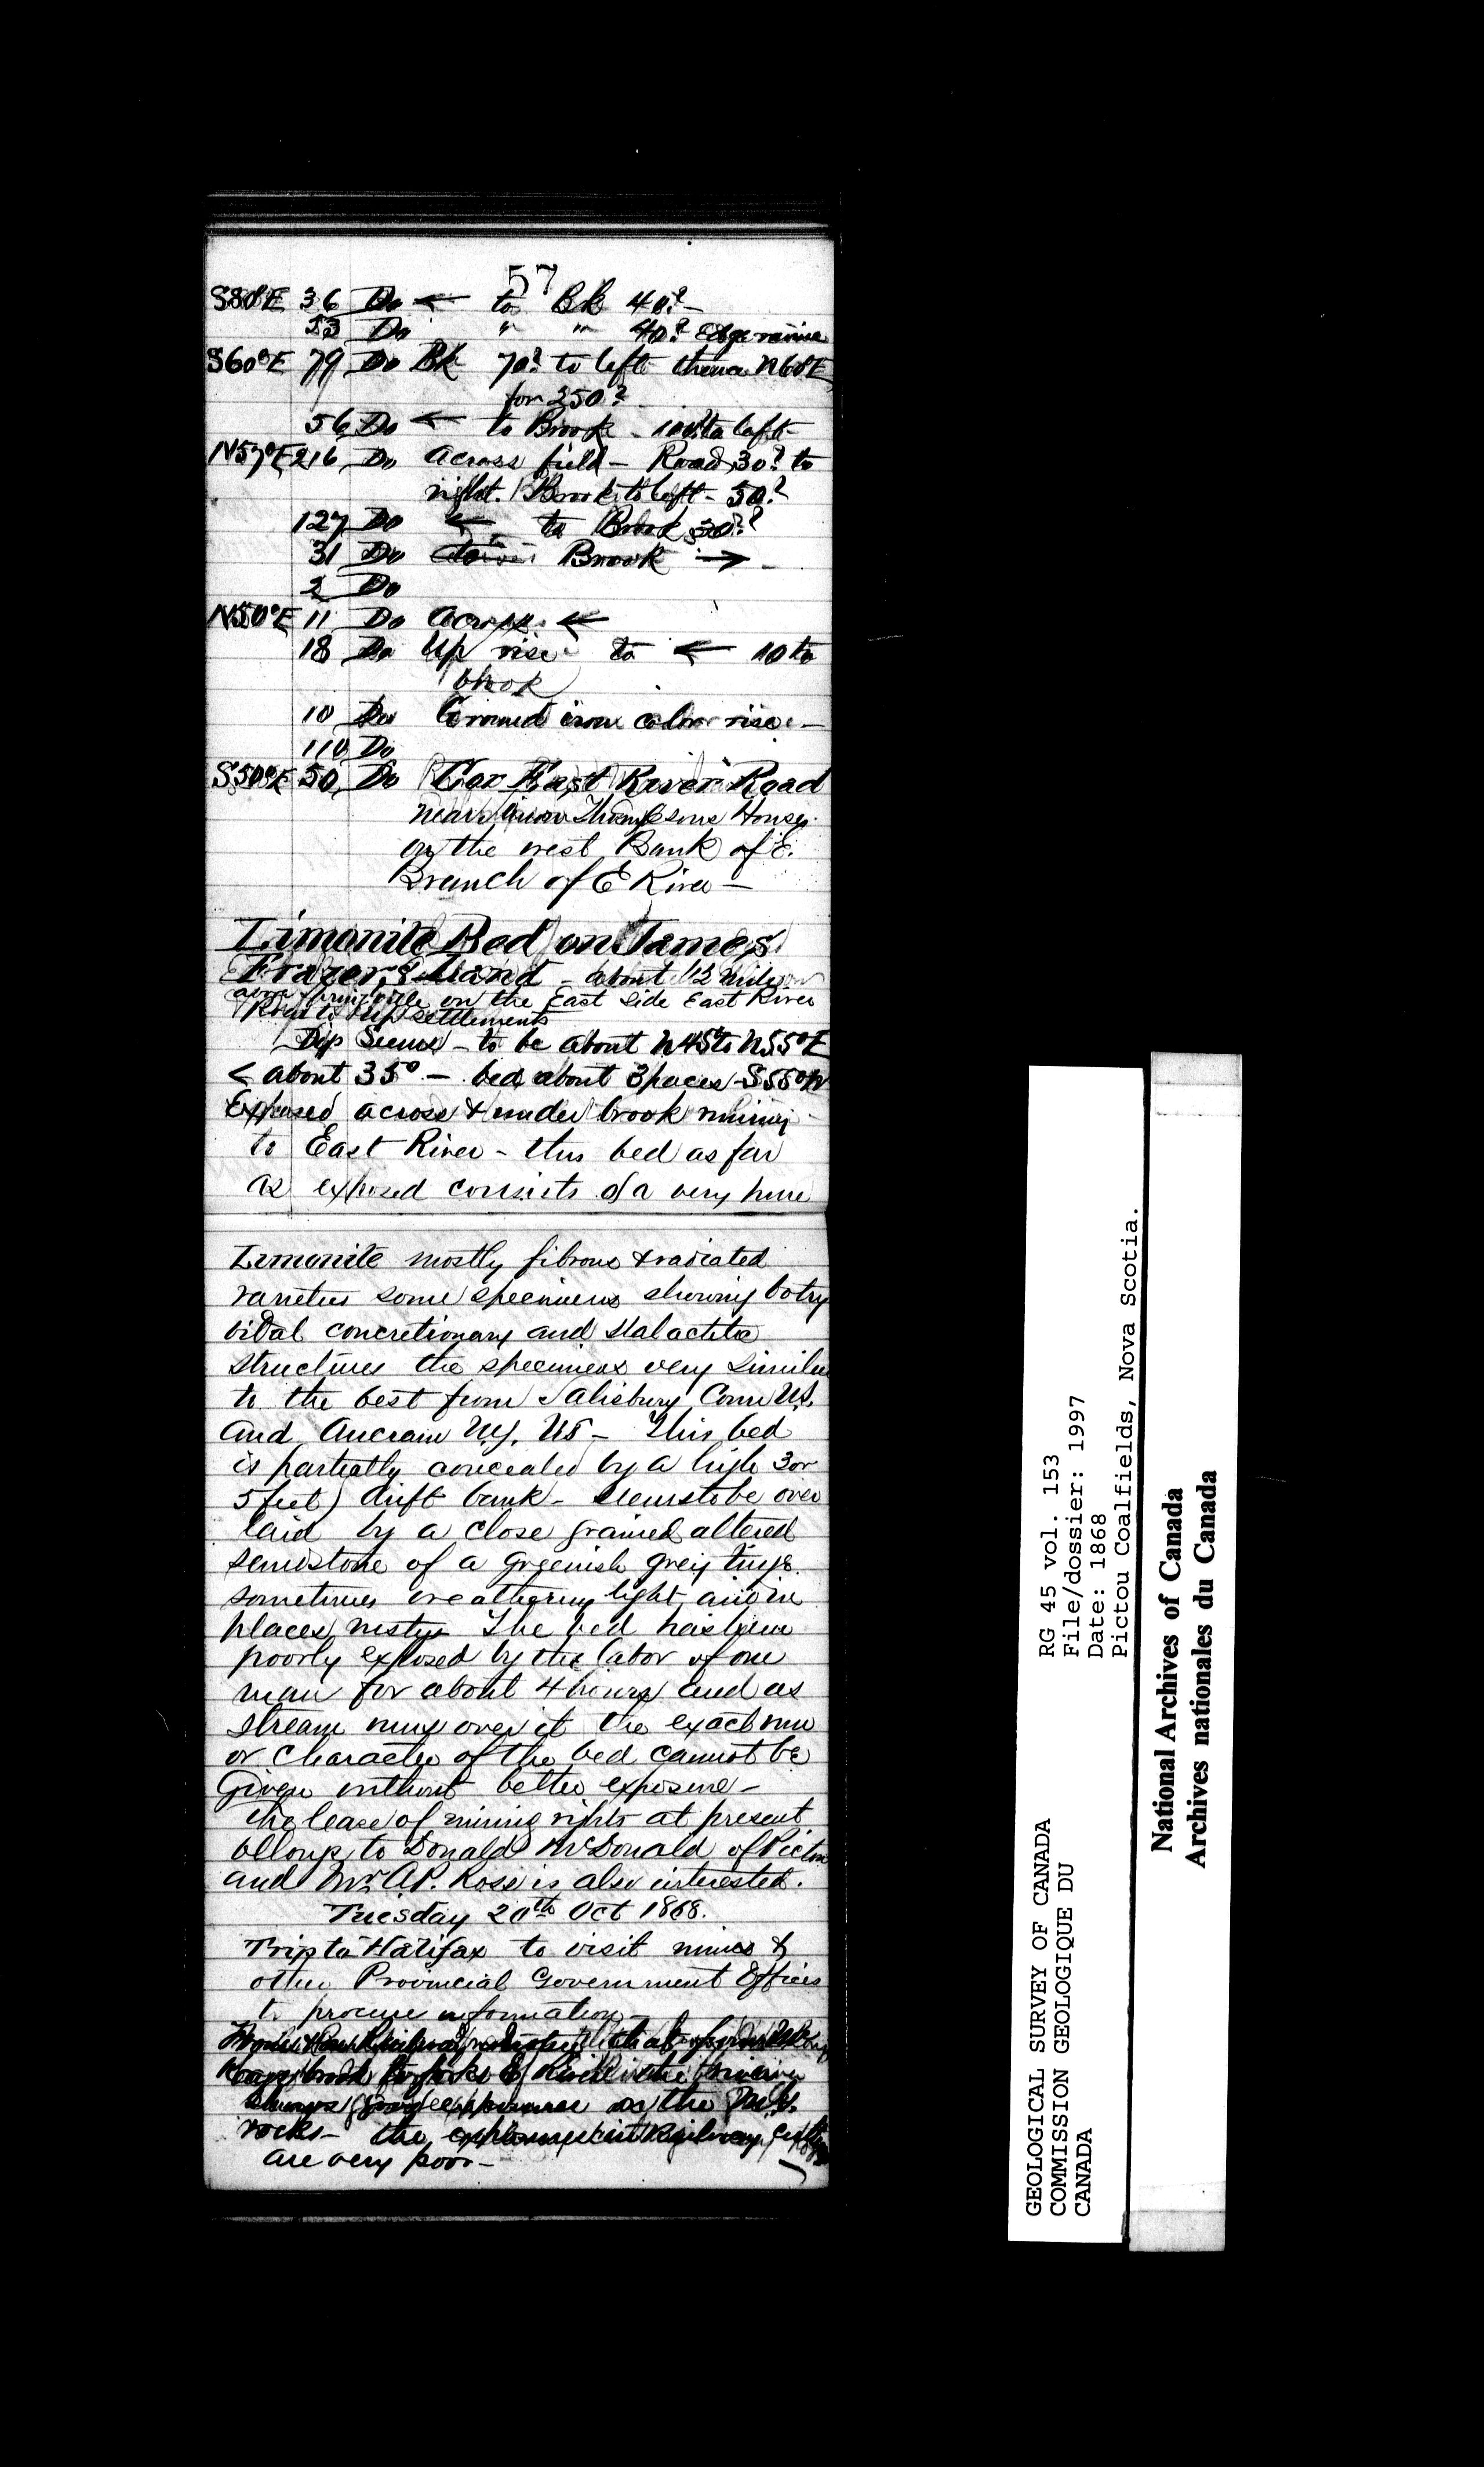 57
S80°E 36 Do ← to Bk 40?-
53 Do " " 40? Edge ravine
S60°E 79 Do Bk 70? to left thence N60°E
for 250?
56 Do ← to Brook - 100? to left-
N57°E 216 Do Across field - Road 30? to
right. Brook to left - 50?
127 Do ← to Brook 30??
31 Do Brook → -
2 Do
N50°E 11 Do Across ←
18 Do Up rise to ← 10 to
brook
10 Do Ground iron color rise -
110 Do
S50°E 50 Do Cor East River Road
near Thompsons House
on the west Bank of E.
Branch of E River -
Limonite Bed on James
Frazer's Land - about 1½ mile
above Springville on the East side East River
Road to up settlements
Dip Seems - to be about N45° to N55°E
< about 35° - bed about 3 paces - S55°W
Exposed across & under brook running
to East River - this bed as far
as exposed consists of a very pure
Limonite mostly fibrous & radiated
varieties some specimens showing botry
oidal concretionary and stalactitic
structures the specimens very similar
to the best from Salisbury Conn US.
and Ancram N.Y. US - This bed
is partially concealed by a high 3 or
5 feet) drift bank - seems to be over
laid by a close grained altered
sandstone of a greenish grey tinge
sometimes weathering light and in
places rusty The bed has been
poorly exposed by the labor of one
man for about 4 hours and as
stream runs over it the exact run
or character of the bed cannot be
Given without better exposure -
The lease of mining rights at present
belongs to Donald McDonald of Pictou
and Mr A.P. Ross is also interested.
Tuesday 20th Oct 1868.
Trip to Halifax to visit mines &
other Provincial Government Offices
to procure information -
Railway
forks River the
exposures the
rocks - the Railway
are very poor -
GEOLOGICAL SURVEY OF CANADA
COMMISSION GEOLOGIQUE DU
CANADA
RG 45 vol. 153
File/dossier: 1997
Date: 1868
Pictou Coalfields, Nova Scotia.
National Archives of Canada
Archives nationales du Canada